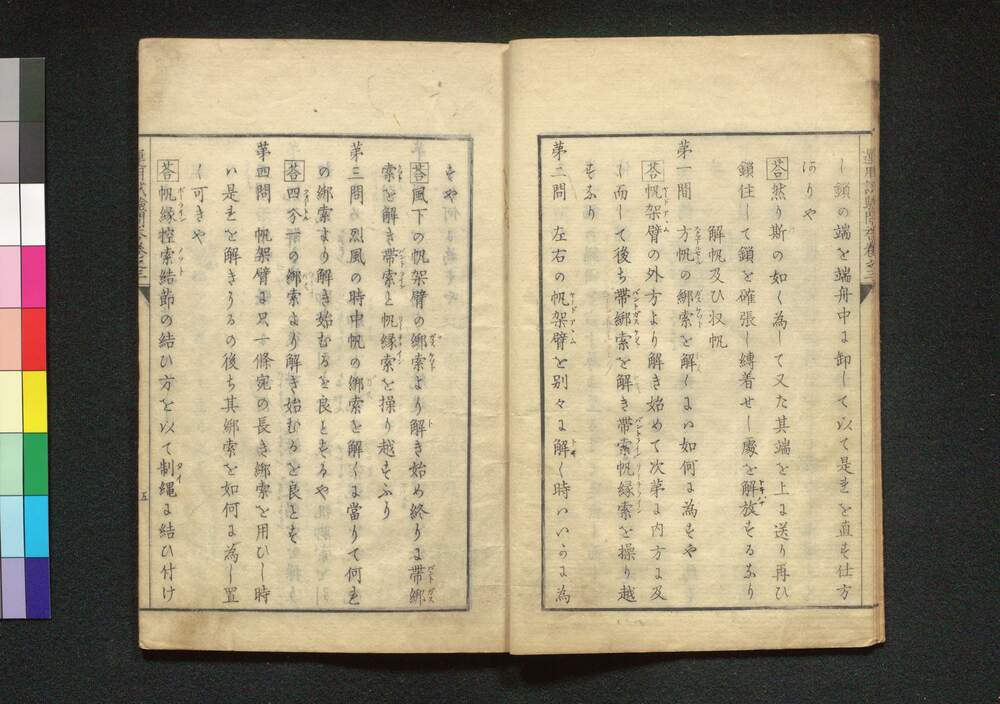 し鎖の端を端舟中に卸して以て是れを直す仕方
ありや
答 然り斯の如く為して又た其端を上に送り再ひ
鎖住して鎖を確張し縛着せし處を解放するなり
解帆及ひ収帆
第一問 方帆の綁索を解くには如何に為すや
答 帆架臂の外方より解き始めて次第に内方に及
ひ而して後ち帯綁索を解き帯索帆縁索を操り越
すなり
第二問 左右の帆架臂を別々に解く時はいかに為
すや
答 風下の帆架臂の綁索より解き始め終りに帯綁
索を解き帯索と帆縁索を操り越すなり
第三問 烈風の時中帆の綁索を解くに當りて何れ
の綁索より解き始むるを良とするや
答 四分一部の綁索より解き始むるを良とす
第四問 帆架臂に只一條宛の長き綁索を用ひし時
は是れを解きたるの後ち其綁索を如何に為し置
く可きや
答 帆縁控索結節の結ひ方を以て制縄に結ひ付け
五